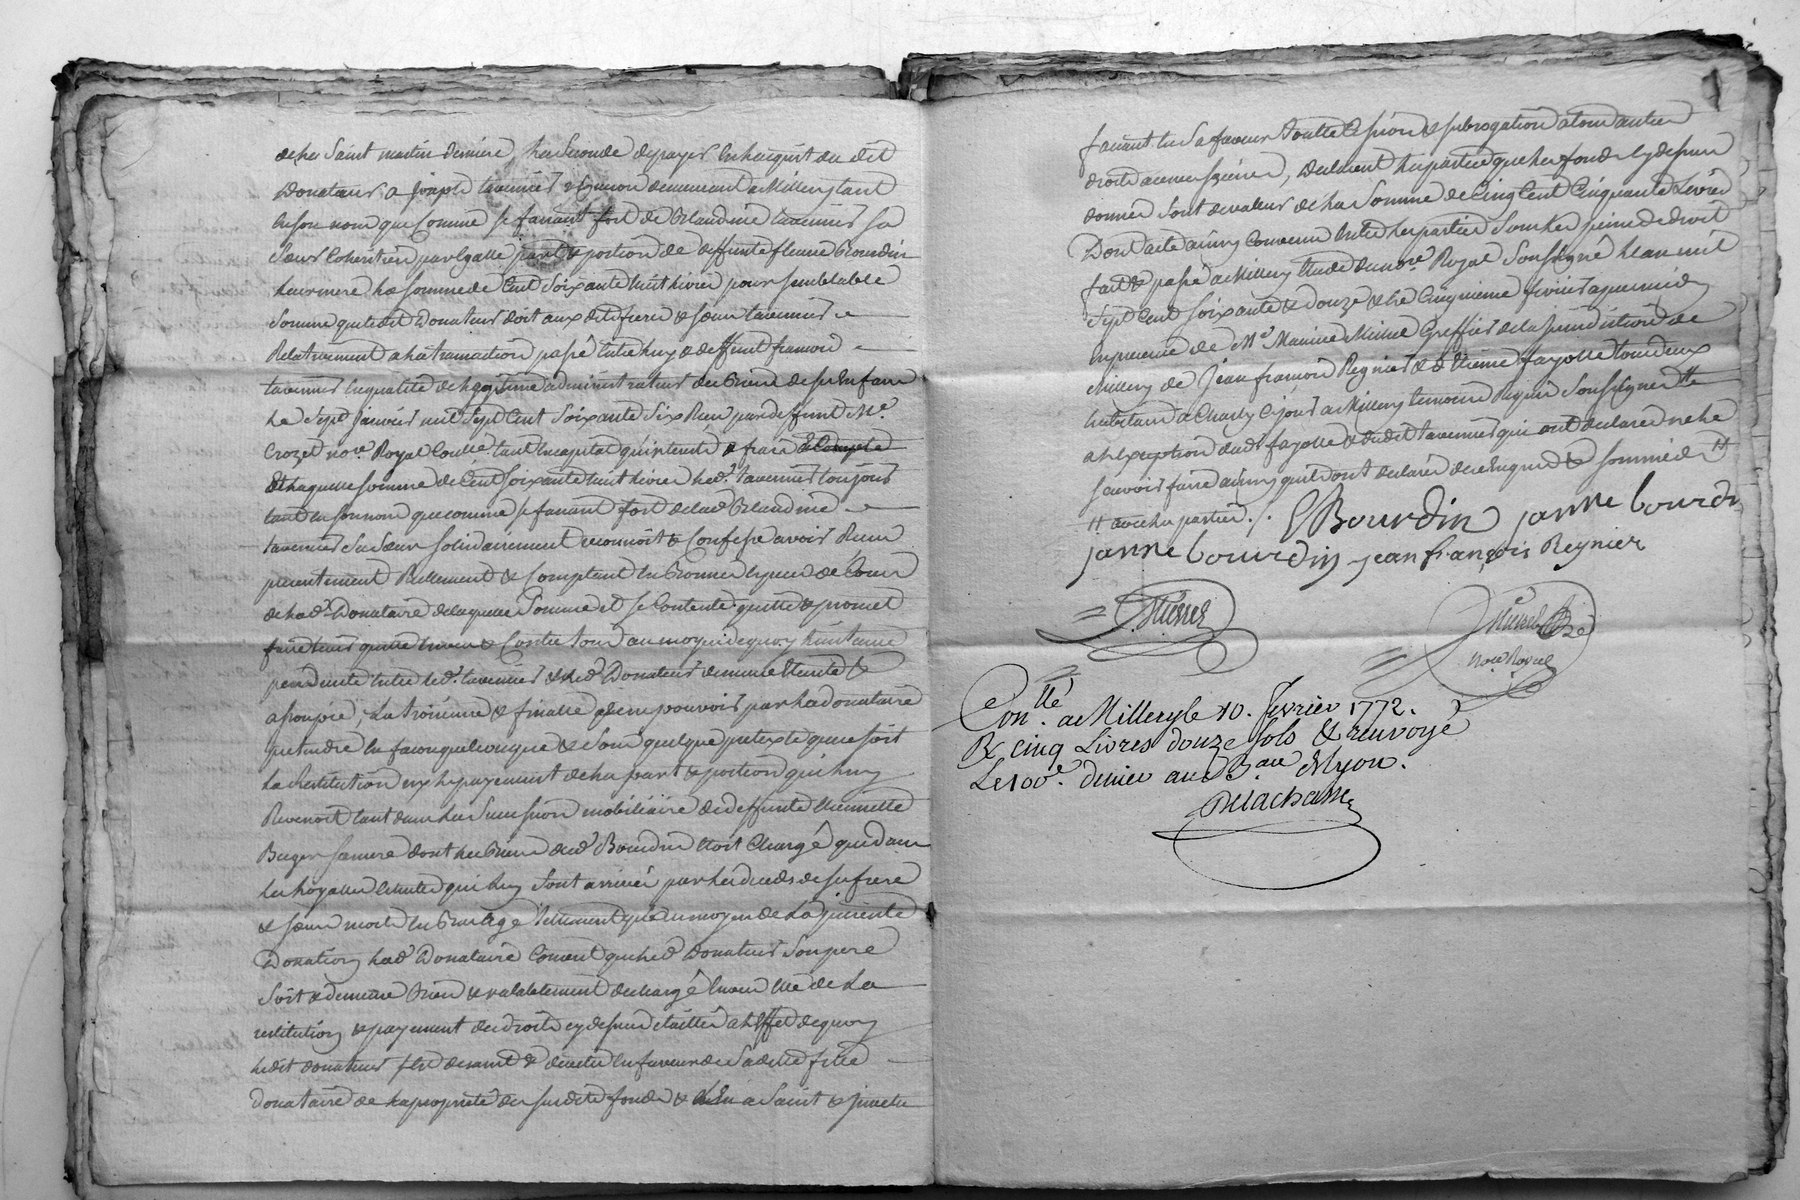 de la Saint martin derniere, la Seconde de payer en lacquit du dit
Donateur, a joseph tavernier vigneron demeurant a Millery tant
en son nom que Comme se faisant fort de Claudine tavernier sa
Sœur Coheritiers par Egalle part & portion de deffunte fleurie Bourdin
leur mere, la somme de Cent Soixante huit livres pour semblable
Somme que ledit Donateur doit aux dits frere & sœur tavernier
Relativement a la transaction passé entre luy & deffunt françois
tavernier en qualité de legitime administrateur des Biens de ses Enfans
le Sept janvier mil Sept Cent Soixante Six Reçu par deffunt Me.
Crozet nore. Royal Contre tant en capital qu'interets & frais
de laquelle somme de Cent Soixante huit livres led. tavernier toujours
tant en son nom que comme se faisant fort de lad. Claudine
tavernier Sa Sœur solidairement reconnoit & Confesse avoir Reçu
presentement Réellement & Comptant en Bonnes Especes de Cours
de lad. Donataire de laquelle Somme il se Contente quitte & promet
faire tenir quitte envers & Contre tous au moyen de quoy
pendante entre led. tavernier & led. Donateur demeure Eteinte &
assoupie, La troisieme & finalle de ne pouvoir par la donataire
pretendre en façon quelconque & sous quelque pretexte que ce soit
La Restitution ny le payement de la part & portion qui luy
Revenoit tant dans la Succession mobiliaire de deffunte
sa mere dont les Biens dud. Bourdin étoit Chargé que dans
les hoyalles échutes qui luy Sont arrivées par les deceds de ses frere
& sœur morts en Bas age tellement que au moyen de La presente
Donation lad. Donataire Consent que led. Donateur Son pere
Soit & demeure Bien & valablement dechargé Envers Elle de La
restitution & payement des droits cy dessus detaillés a l'Effet de quoy
ledit donateur s'est demis & devetu en faveur de Sa ditte fille
Donataire de la proprieté des susdits fonds & a Saint & Investu
faisant en Sa faveur toutte Cession & subrogation a tous autres
droits a ce necessaires, declarent les parties que les fonds cy dessus
donnés sont de valeur de la Somme de Cinq Cent Cinquante Livres
Dont acte ainsy Convenu entre les parties Sous les peines de droit
fait & passé a Millery Etude du nore. Royal Soussigné L'an mil
Sept Cent Soixante & Douze & le Cinquieme fevrier apres midy
en presence de Me. Maurice Michel Greffier de la jurisdiction de
Millery de Jean françois Reynier & d'Etienne fayolle tous deux
habitans a Charly Ce jour a Millery temoins Requis Soussignés
a l'exception dud. fayolle & dudit tavernier qui ont declaré ne le
savoir faire ainsy qu'ils ont declaré de ce Enquis & sommés
avec les parties./. Bourdin janne bourdin
janne bourdin jean françois Reynier
Michel
nore Royal
Conllé. a Millery le 10. fevrier 1772.
R cinq Livres douze sols & renvoyé
Le 100e. denier au Bau de Lyon.
Delachasse